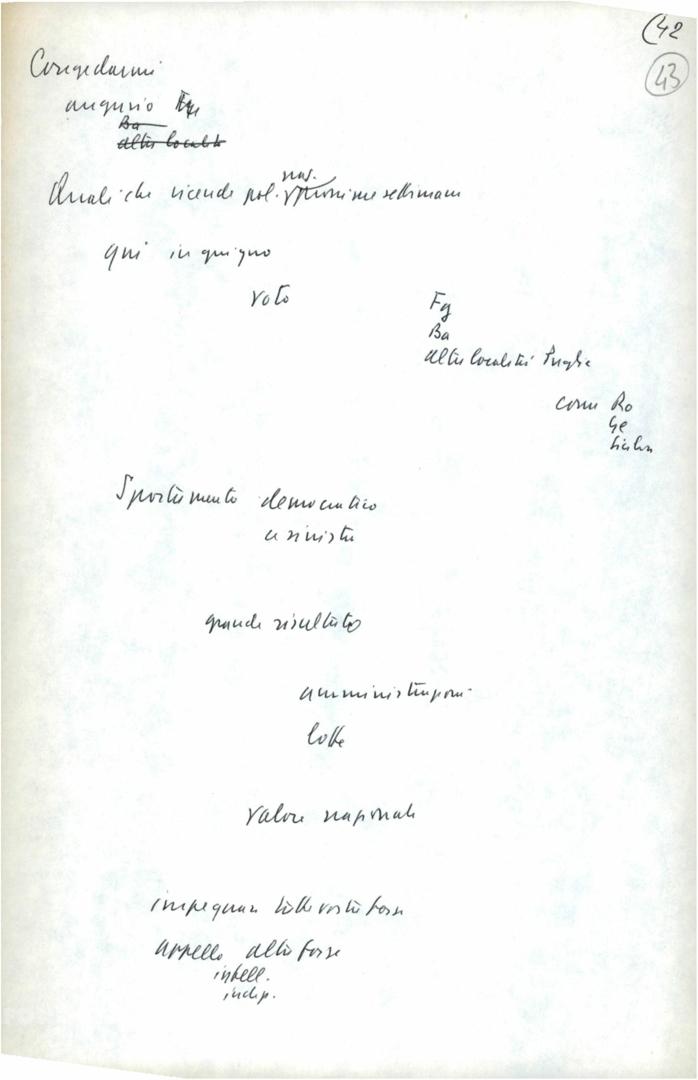 (42
43
Congedarmi
augurio Fg
Ba
altre località
Quali che vicende pol. naz. prossime settimane
qui in giugno
voto
Fg
Ba
altre località Puglia
come Ro
Ge
Sicilia
Spostamento democratico
a sinistra
grande risultato
amministrazioni
lotte
valore nazionale
impegnare tutte vostre forze
appello altre forze
intell.
indip.